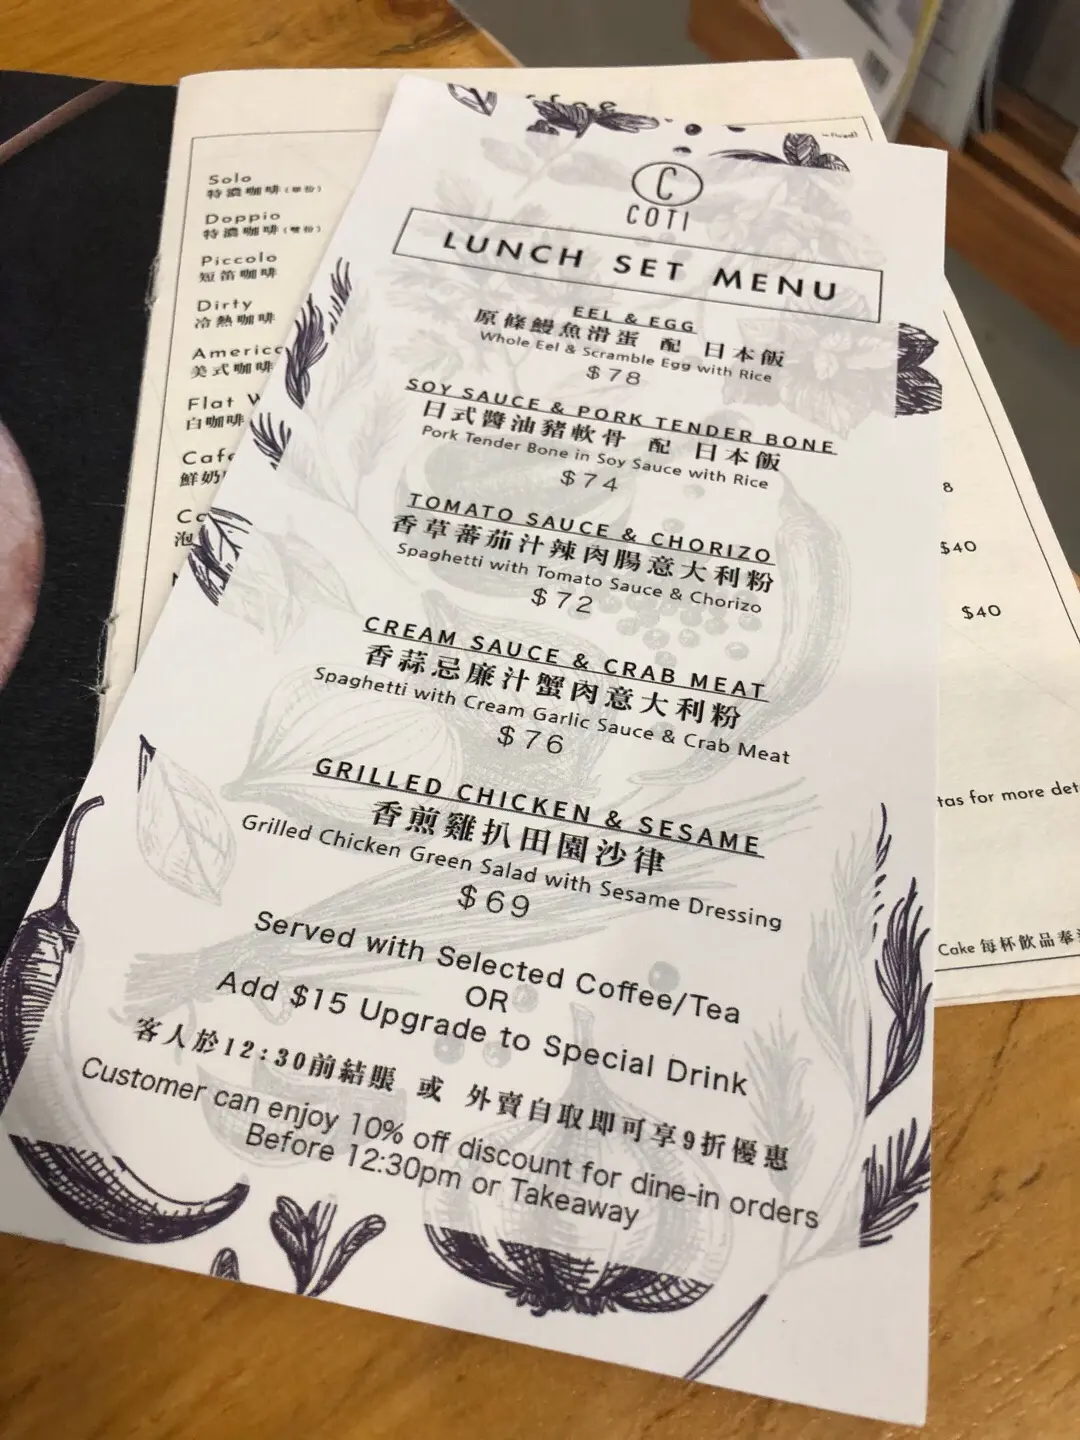 C
COTI
LUNCH SET MENU
EEL & EGG
原條鰻魚滑蛋 配 日本飯
Whole Eel & Scramble Egg with Rice
$78
SOY SAUCE & PORK TENDER BONE
日式醬油豬軟骨 配 日本飯
Pork Tender Bone in Soy Sauce with Rice
$74
TOMATO SAUCE & CHORIZO
香草蕃茄汁辣肉腸意大利粉
Spaghetti with Tomato Sauce & Chorizo
$72
CREAM SAUCE & CRAB MEAT
香蒜忌廉汁蟹肉意大利粉
Spaghetti with Cream Garlic Sauce & Crab Meat
$76
GRILLED CHICKEN & SESAME
香煎雞扒田園沙律
Grilled Chicken Green Salad with Sesame Dressing
$69
Served with Selected Coffee/Tea
OR
Add $15 Upgrade to Special Drink
客人於12:30前結賬 或 外賣自取即可享9折優惠
Customer can enjoy 10% off discount for dine-in orders
Before 12:30pm or Takeaway
Solo
特濃咖啡(單份)
Doppio
特濃咖啡(雙份)
Piccolo
短笛咖啡
Dirty
冷熱咖啡
Americ
美式咖啡
Flat
白咖啡
Caf
鮮奶
泡
8
$40
$40
tas for more det
Cake 每杯飲品奉